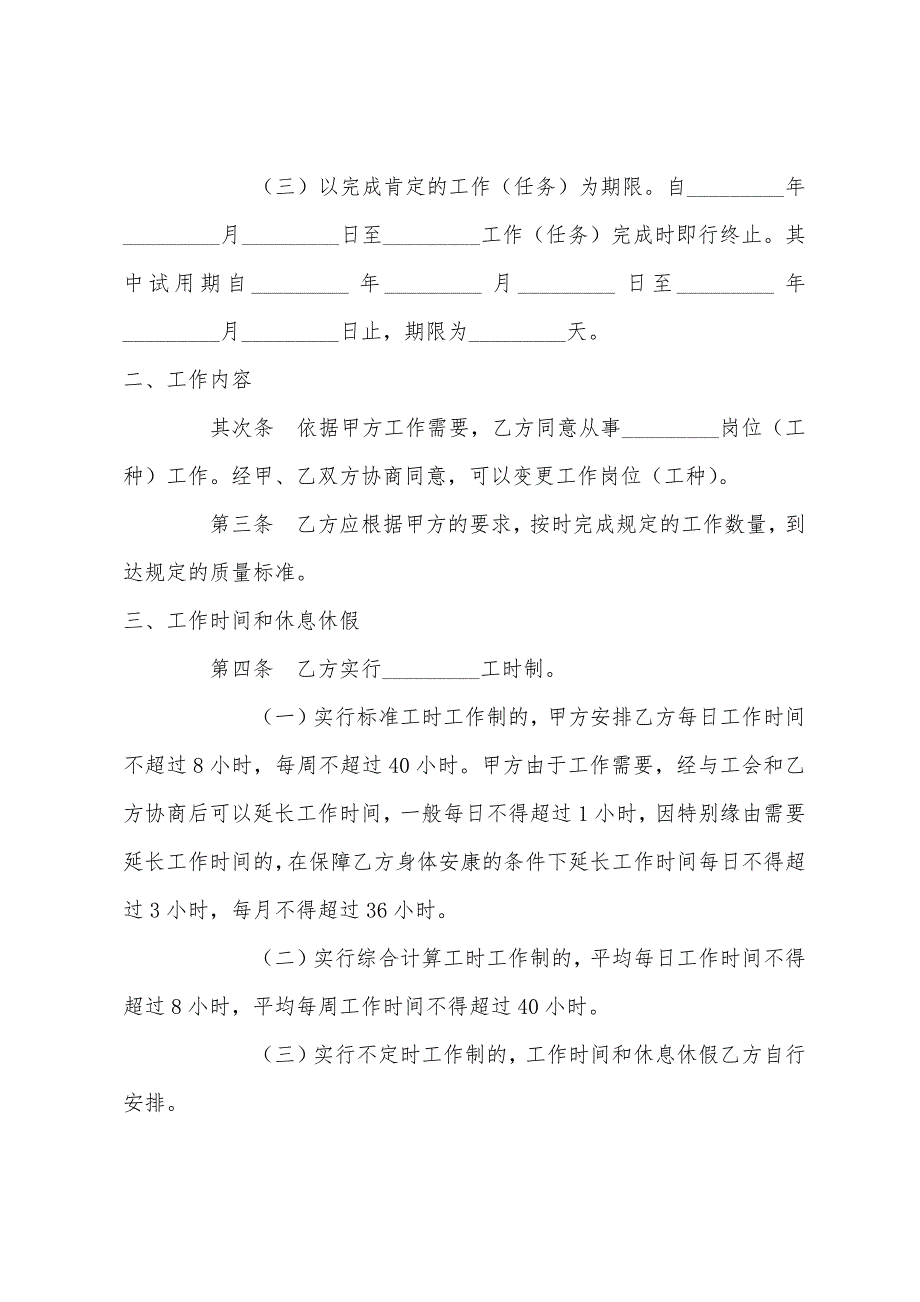 （三）以完成肯定的工作（任务）为期限。自_________年
_________月_________日至_________工作（任务）完成时即行终止。其
中试用期自_________ 年_________ 月_________ 日至_________ 年
_________月_________日止，期限为_________天。
二、工作内容
其次条 依据甲方工作需要，乙方同意从事_________岗位（工
种）工作。经甲、乙双方协商同意，可以变更工作岗位（工种）。
第三条 乙方应根据甲方的要求，按时完成规定的工作数量，到
达规定的质量标准。
三、工作时间和休息休假
第四条 乙方实行_________工时制。
（一）实行标准工时工作制的，甲方安排乙方每日工作时间
不超过 8 小时，每周不超过 40 小时。甲方由于工作需要，经与工会和乙
方协商后可以延长工作时间，一般每日不得超过 1 小时，因特别缘由需要
延长工作时间的，在保障乙方身体安康的条件下延长工作时间每日不得超
过 3 小时，每月不得超过 36 小时。
（二）实行综合计算工时工作制的，平均每日工作时间不得
超过 8 小时，平均每周工作时间不得超过 40 小时。
（三）实行不定时工作制的，工作时间和休息休假乙方自行
安排。